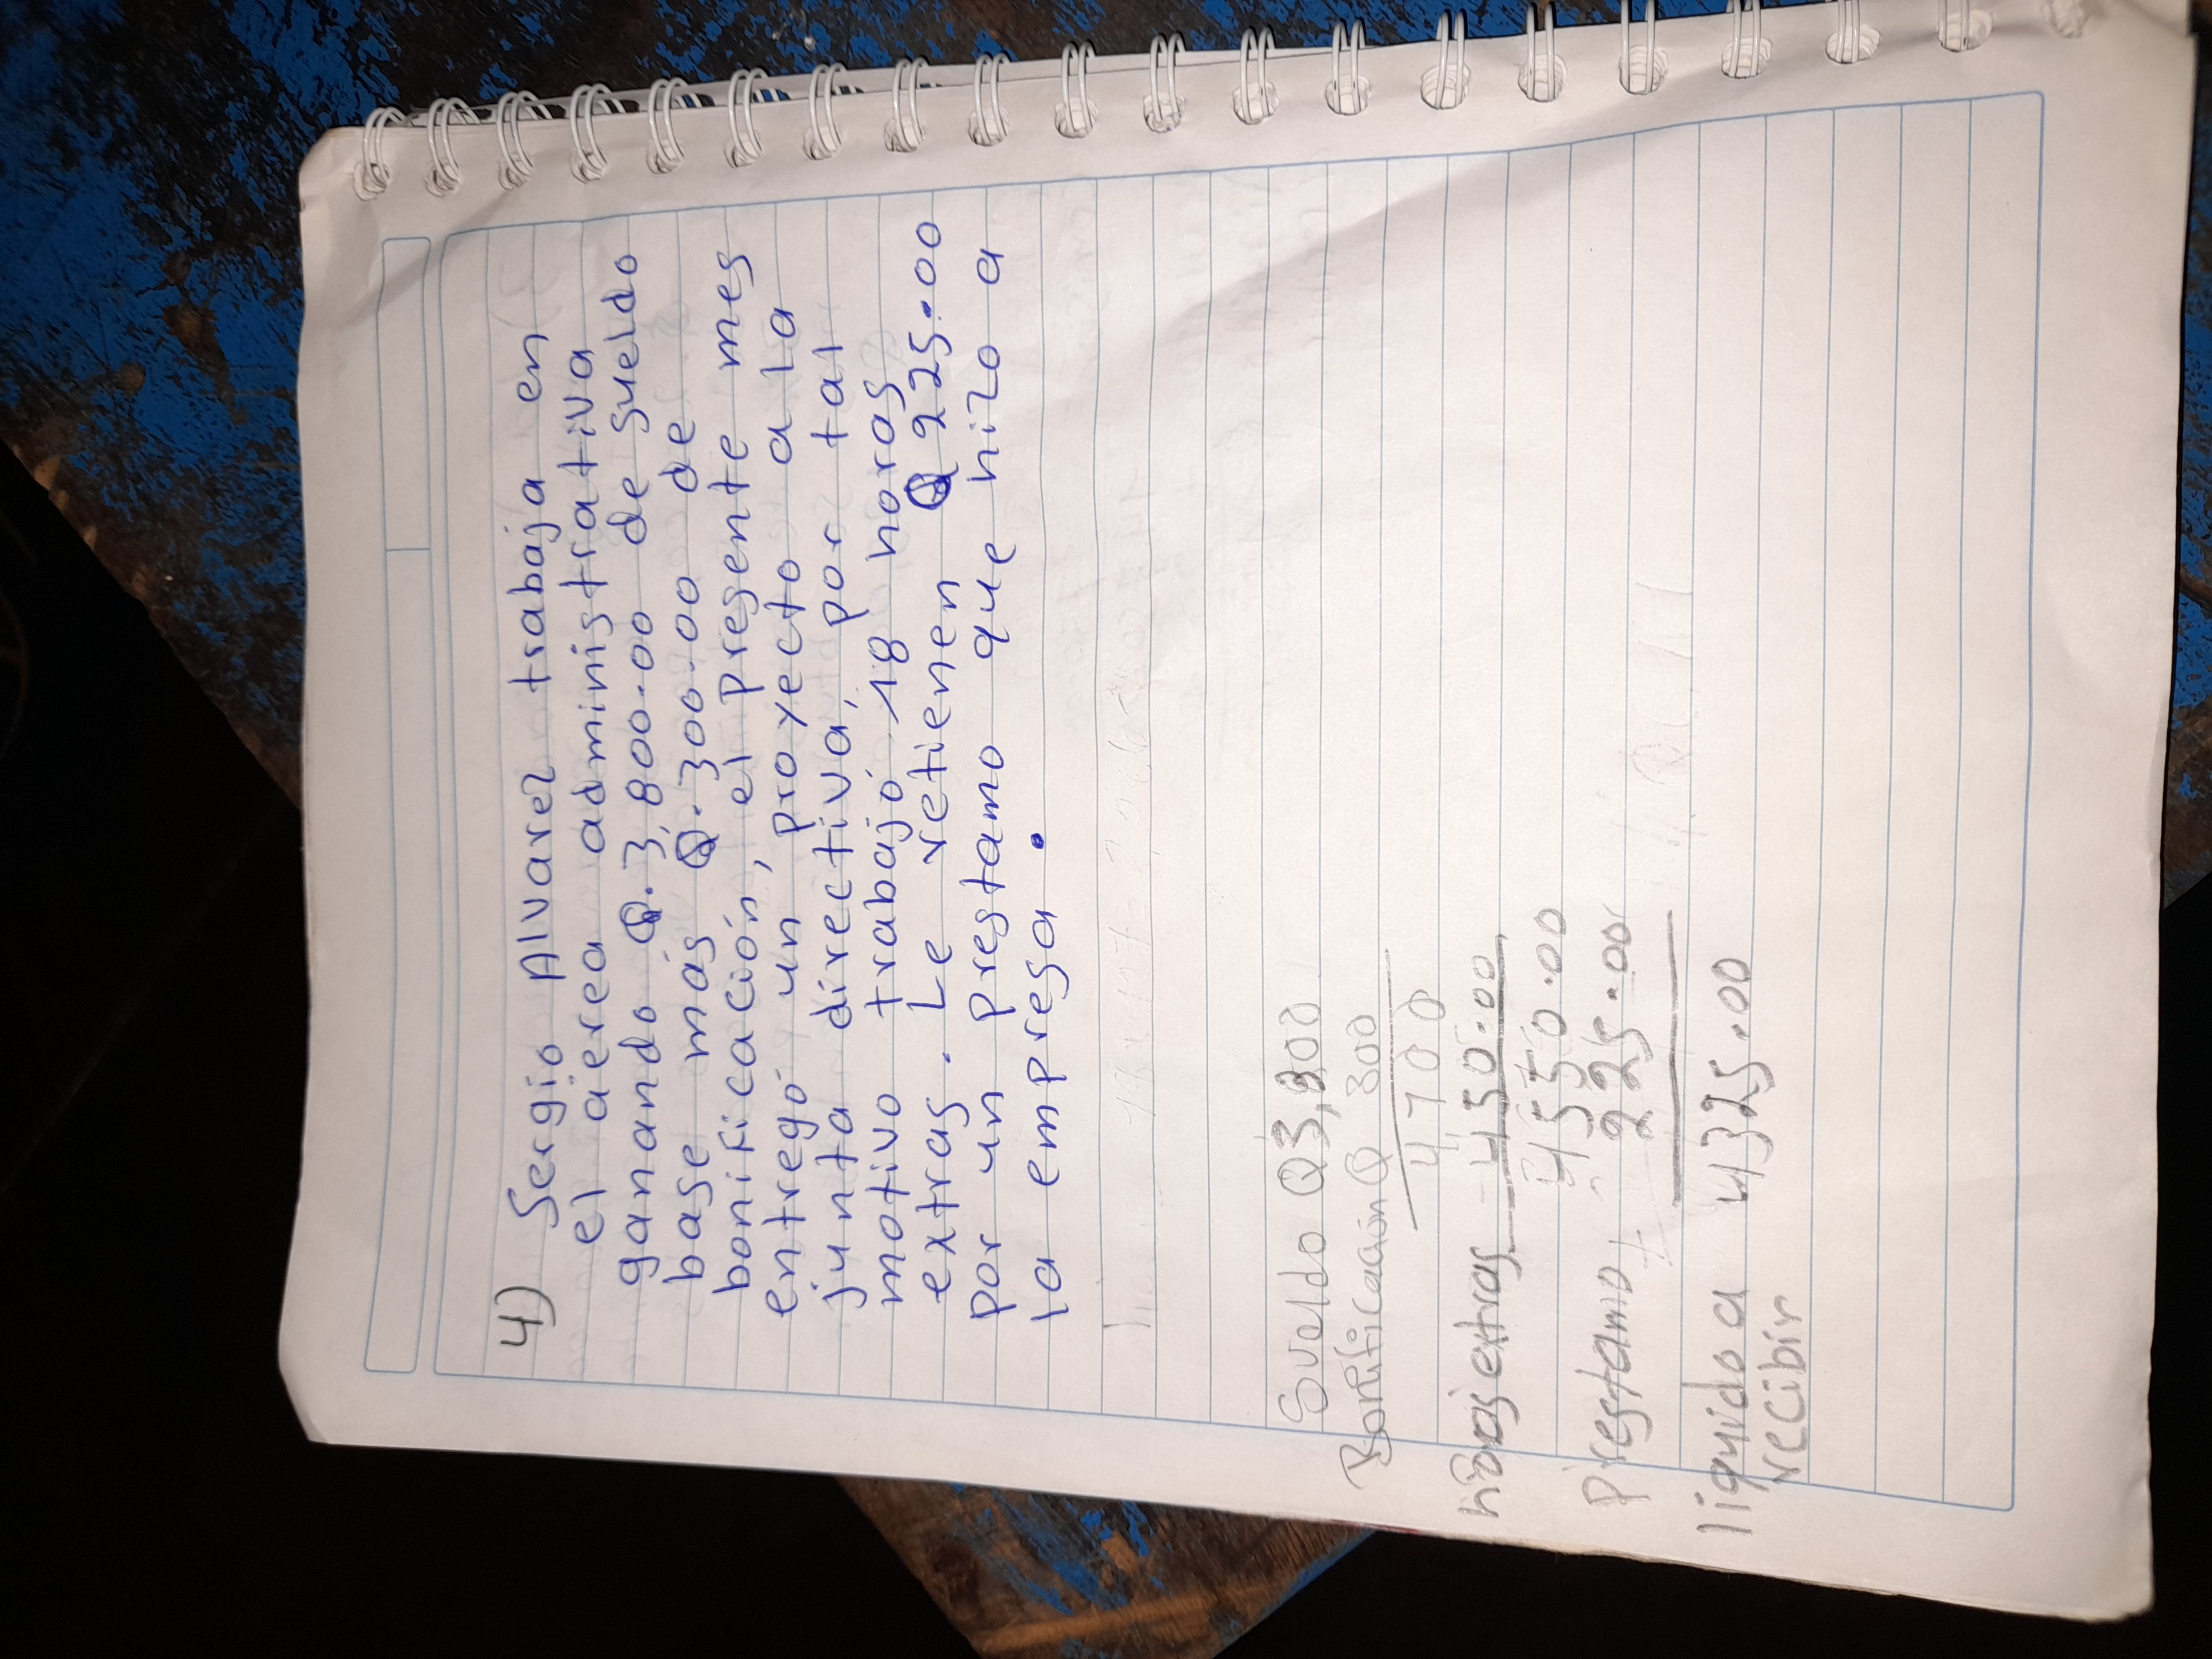 4) Sergio Alvarez trabaja en
el aerea administrativa
ganando Q.3,800.00 de sueldo
base más Q.300.00 de
bonificación, el presente mes
entregó un proyecto a la
junta directiva, por tal
motivo trabajó 18 horas
extras. Le retienen Q 225.00
por un prestamo que hizo a
la empresa.
Sueldo Q3,800
Bonificación Q 300
4700
horas extras 450.00
4550.00
Prestamo - 225.00
liquido a 4325.00
recibir